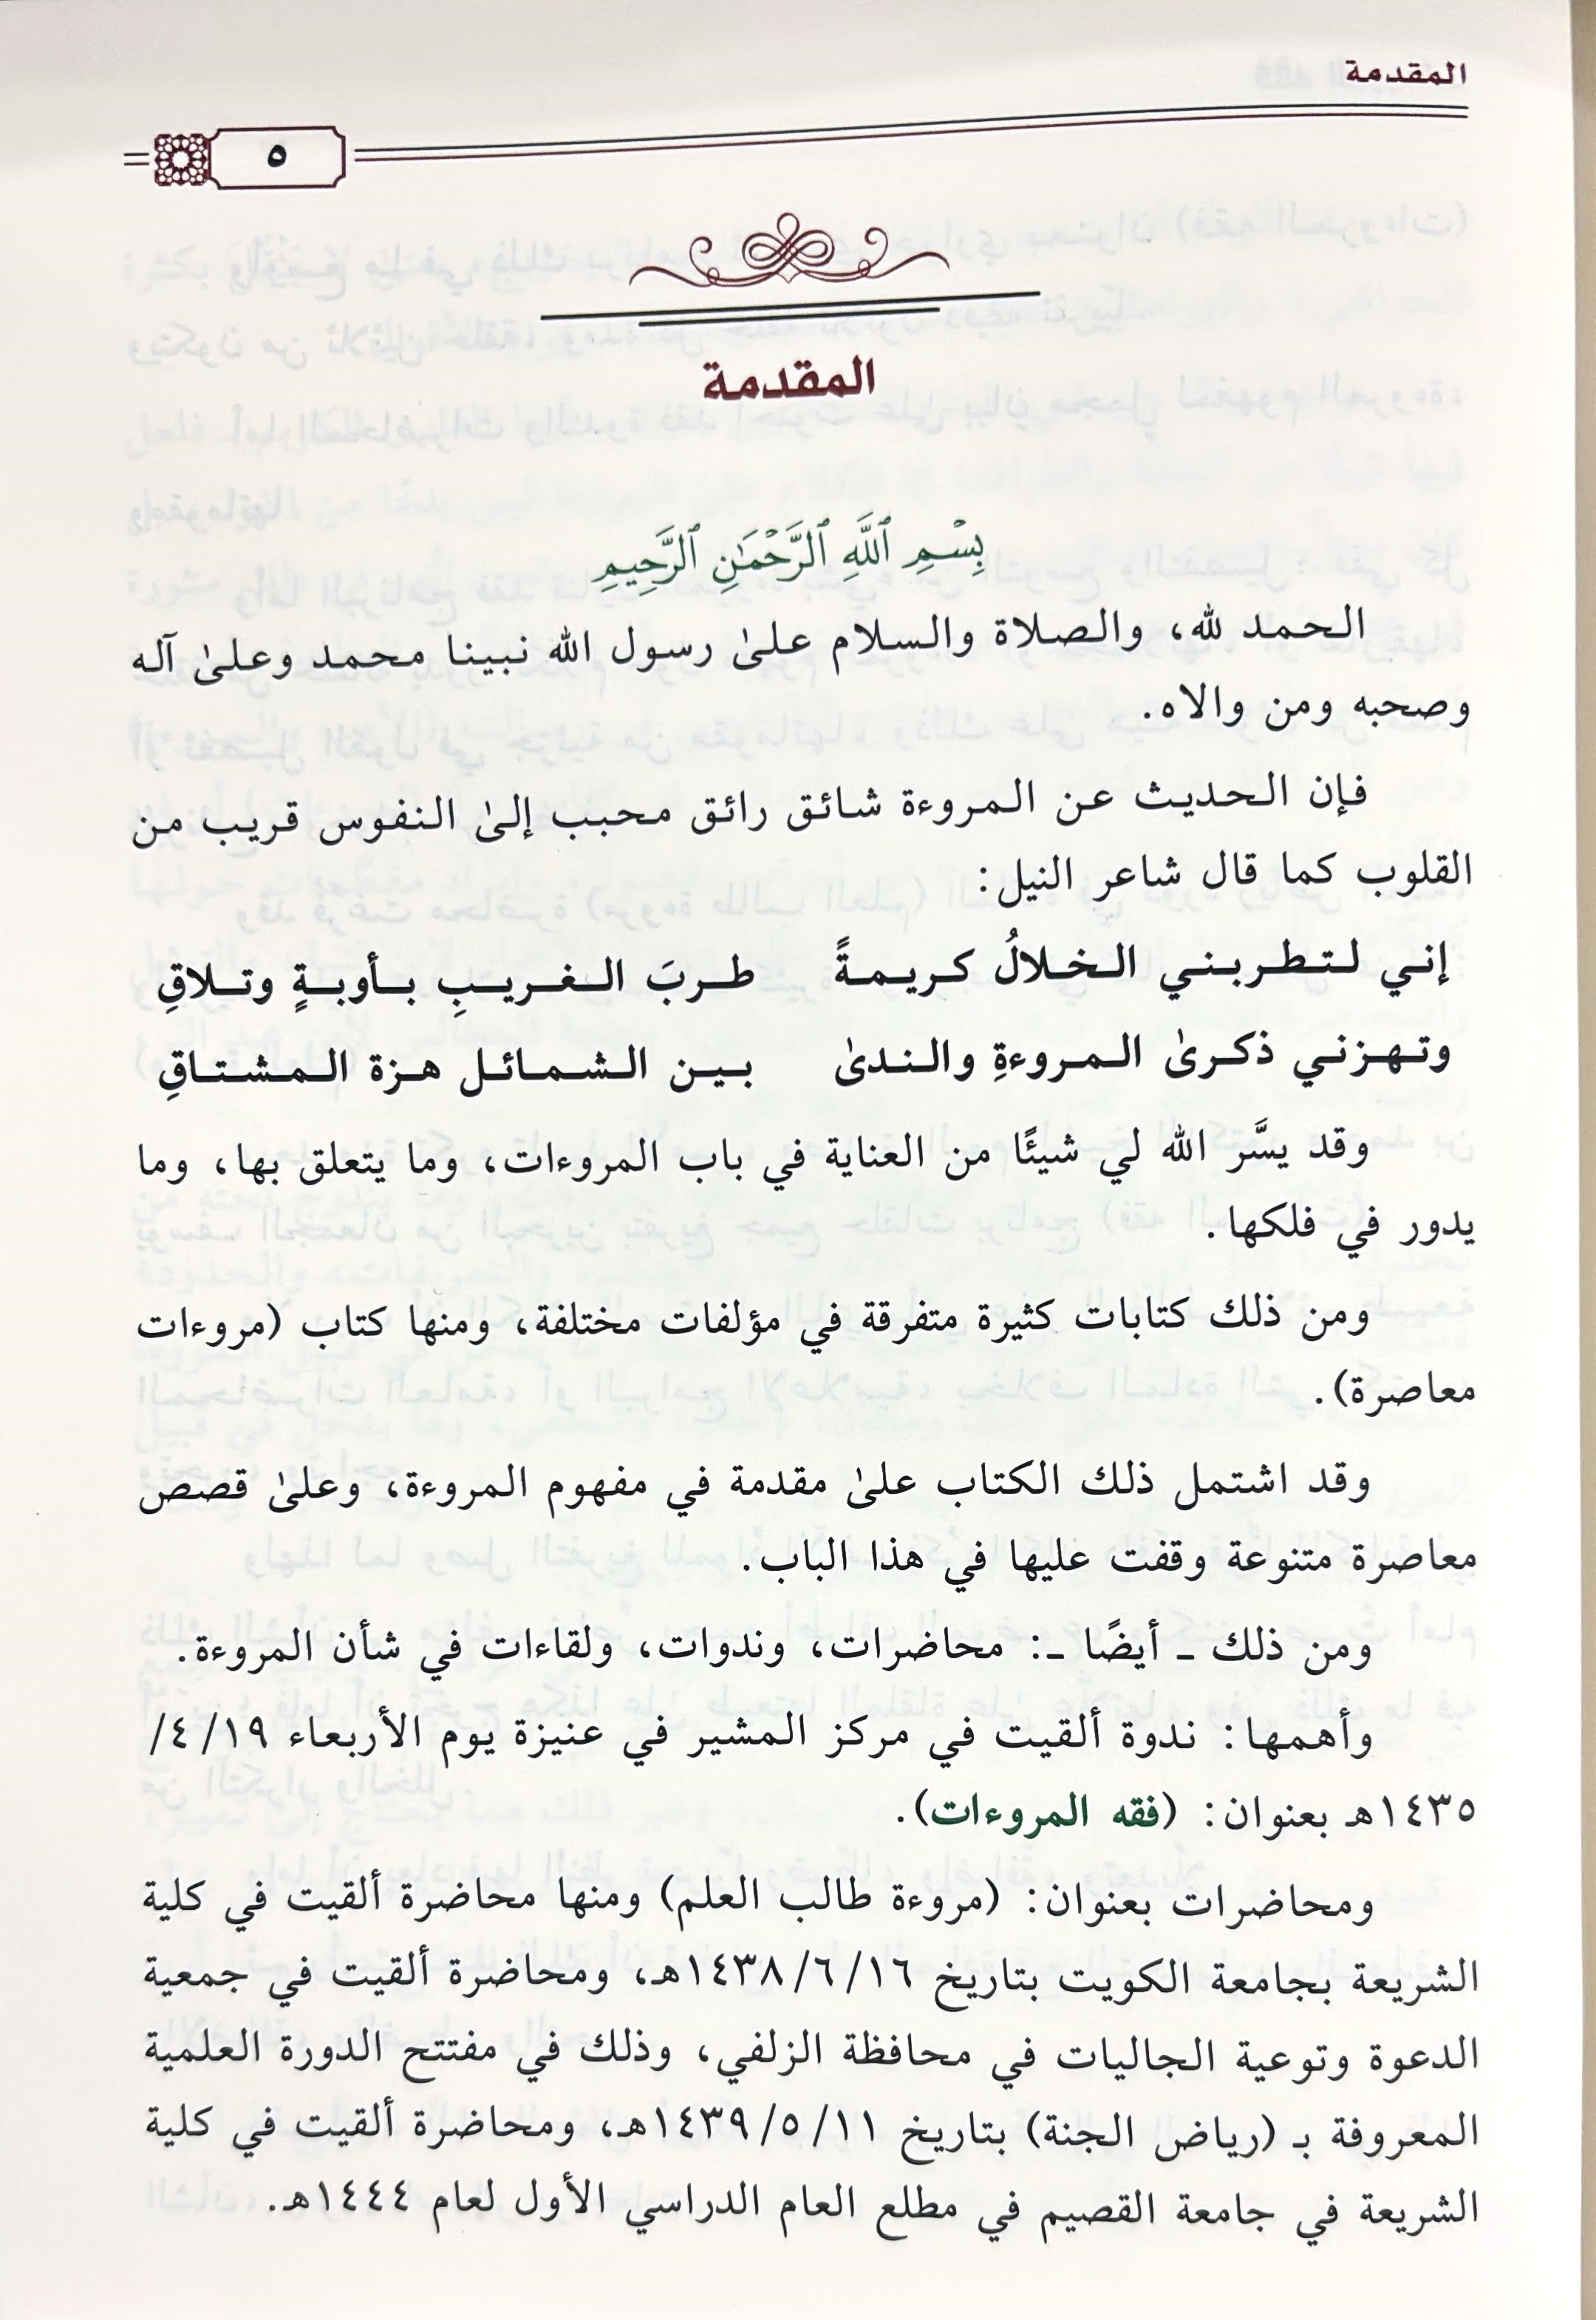 المقدمة
٥
المقدمة
بِسْمِ ٱللَّهِ ٱلرَّحْمَٰنِ ٱلرَّحِيمِ
الحمد لله، والصلاة والسلام علىٰ رسول الله نبينا محمد وعلىٰ آله
وصحبه ومن والاه.
فإن الحديث عن المروءة شائق رائق محبب إلىٰ النفوس قريب من
القلوب كما قال شاعر النيل:
إني لتطربني الخلالُ كريمةً طربَ الغريبِ بأوبةٍ وتلاقِ
وتهزني ذكرىٰ المروءةِ والندىٰ بين الشمائل هزة المشتاقِ
وقد يسَّر الله لي شيئًا من العناية في باب المروءات، وما يتعلق بها، وما
يدور في فلكها.
ومن ذلك كتابات كثيرة متفرقة في مؤلفات مختلفة، ومنها كتاب (مروءات
معاصرة).
وقد اشتمل ذلك الكتاب علىٰ مقدمة في مفهوم المروءة، وعلىٰ قصص
معاصرة متنوعة وقفت عليها في هذا الباب.
ومن ذلك ـ أيضًا ـ: محاضرات، وندوات، ولقاءات في شأن المروءة.
وأهمها: ندوة ألقيت في مركز المشير في عنيزة يوم الأربعاء ١٩/ ٤/
١٤٣٥هـ بعنوان: (فقه المروءات).
ومحاضرات بعنوان: (مروءة طالب العلم) ومنها محاضرة ألقيت في كلية
الشريعة بجامعة الكويت بتاريخ ١٦/ ٦/ ١٤٣٨هـ، ومحاضرة ألقيت في جمعية
الدعوة وتوعية الجاليات في محافظة الزلفي، وذلك في مفتتح الدورة العلمية
المعروفة بـ (رياض الجنة) بتاريخ ١١/ ٥/ ١٤٣٩هـ، ومحاضرة ألقيت في كلية
الشريعة في جامعة القصيم في مطلع العام الدراسي الأول لعام ١٤٤٤هـ.